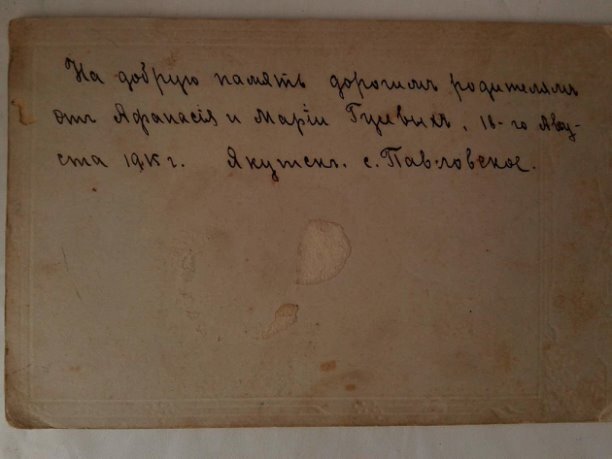 На добрую память дорогимъ родителямъ
отъ Афанасія и Маріи 18-го Авгу-
ста г. Якутскъ. с. Павловское.